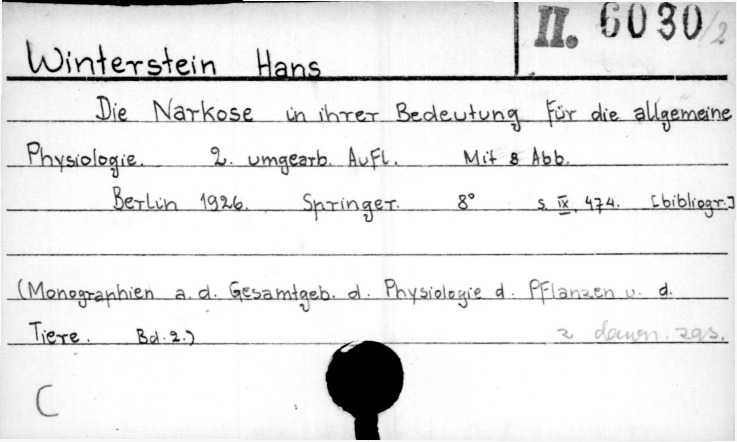 II. 6030/2
Winterstein Hans
Die Narkose in ihrer Bedeutung für die allgemeine
Physiologie. 2. umgearb. Aufl. Mit 8 Abb.
Berlin 1926. Springer. 8° s. IX, 474. [bibliogr.]
(Monographien a. d. Gesamtgeb. d. Physiologie d. Pflanzen u. d.
Tiere. Bd. 2.) z dawn. zas.
C